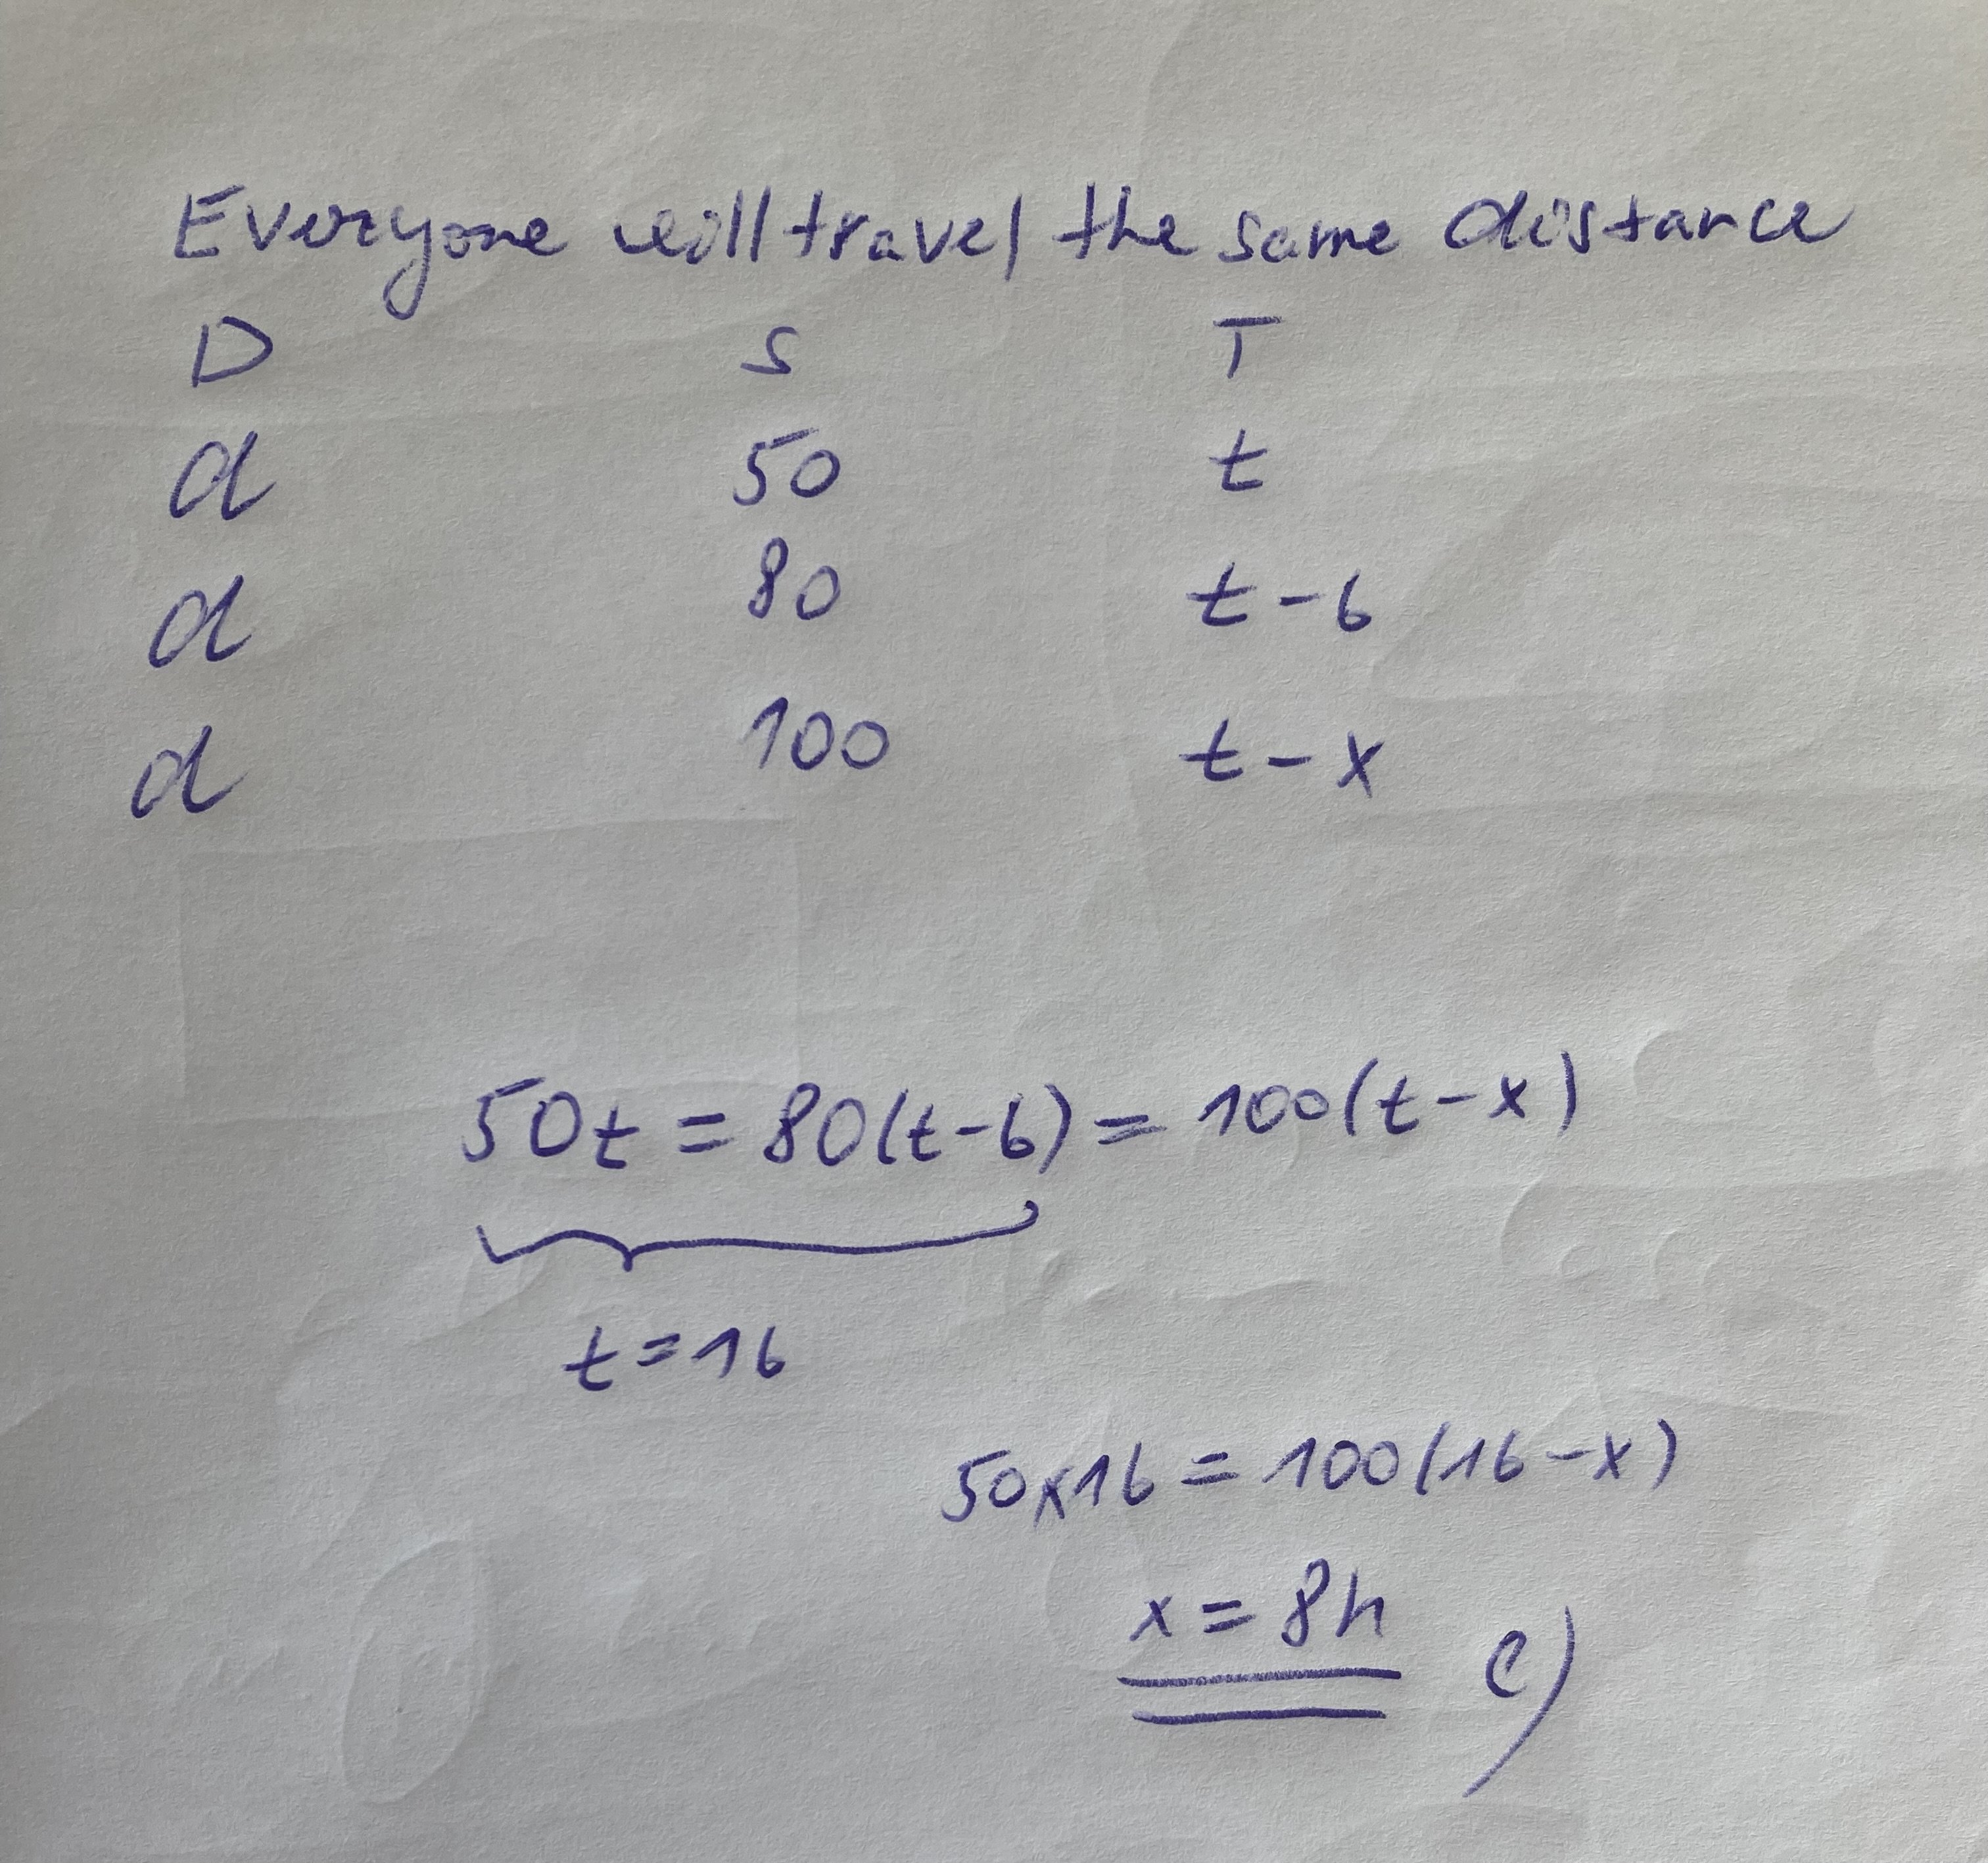 Everyone will travel the same distance
D S T
d 50 t
d 80 t-6
d 100 t-x
50t = 80(t-6) = 100(t-x)
t=16
50x16 = 100(16-x)
x = 8h c)